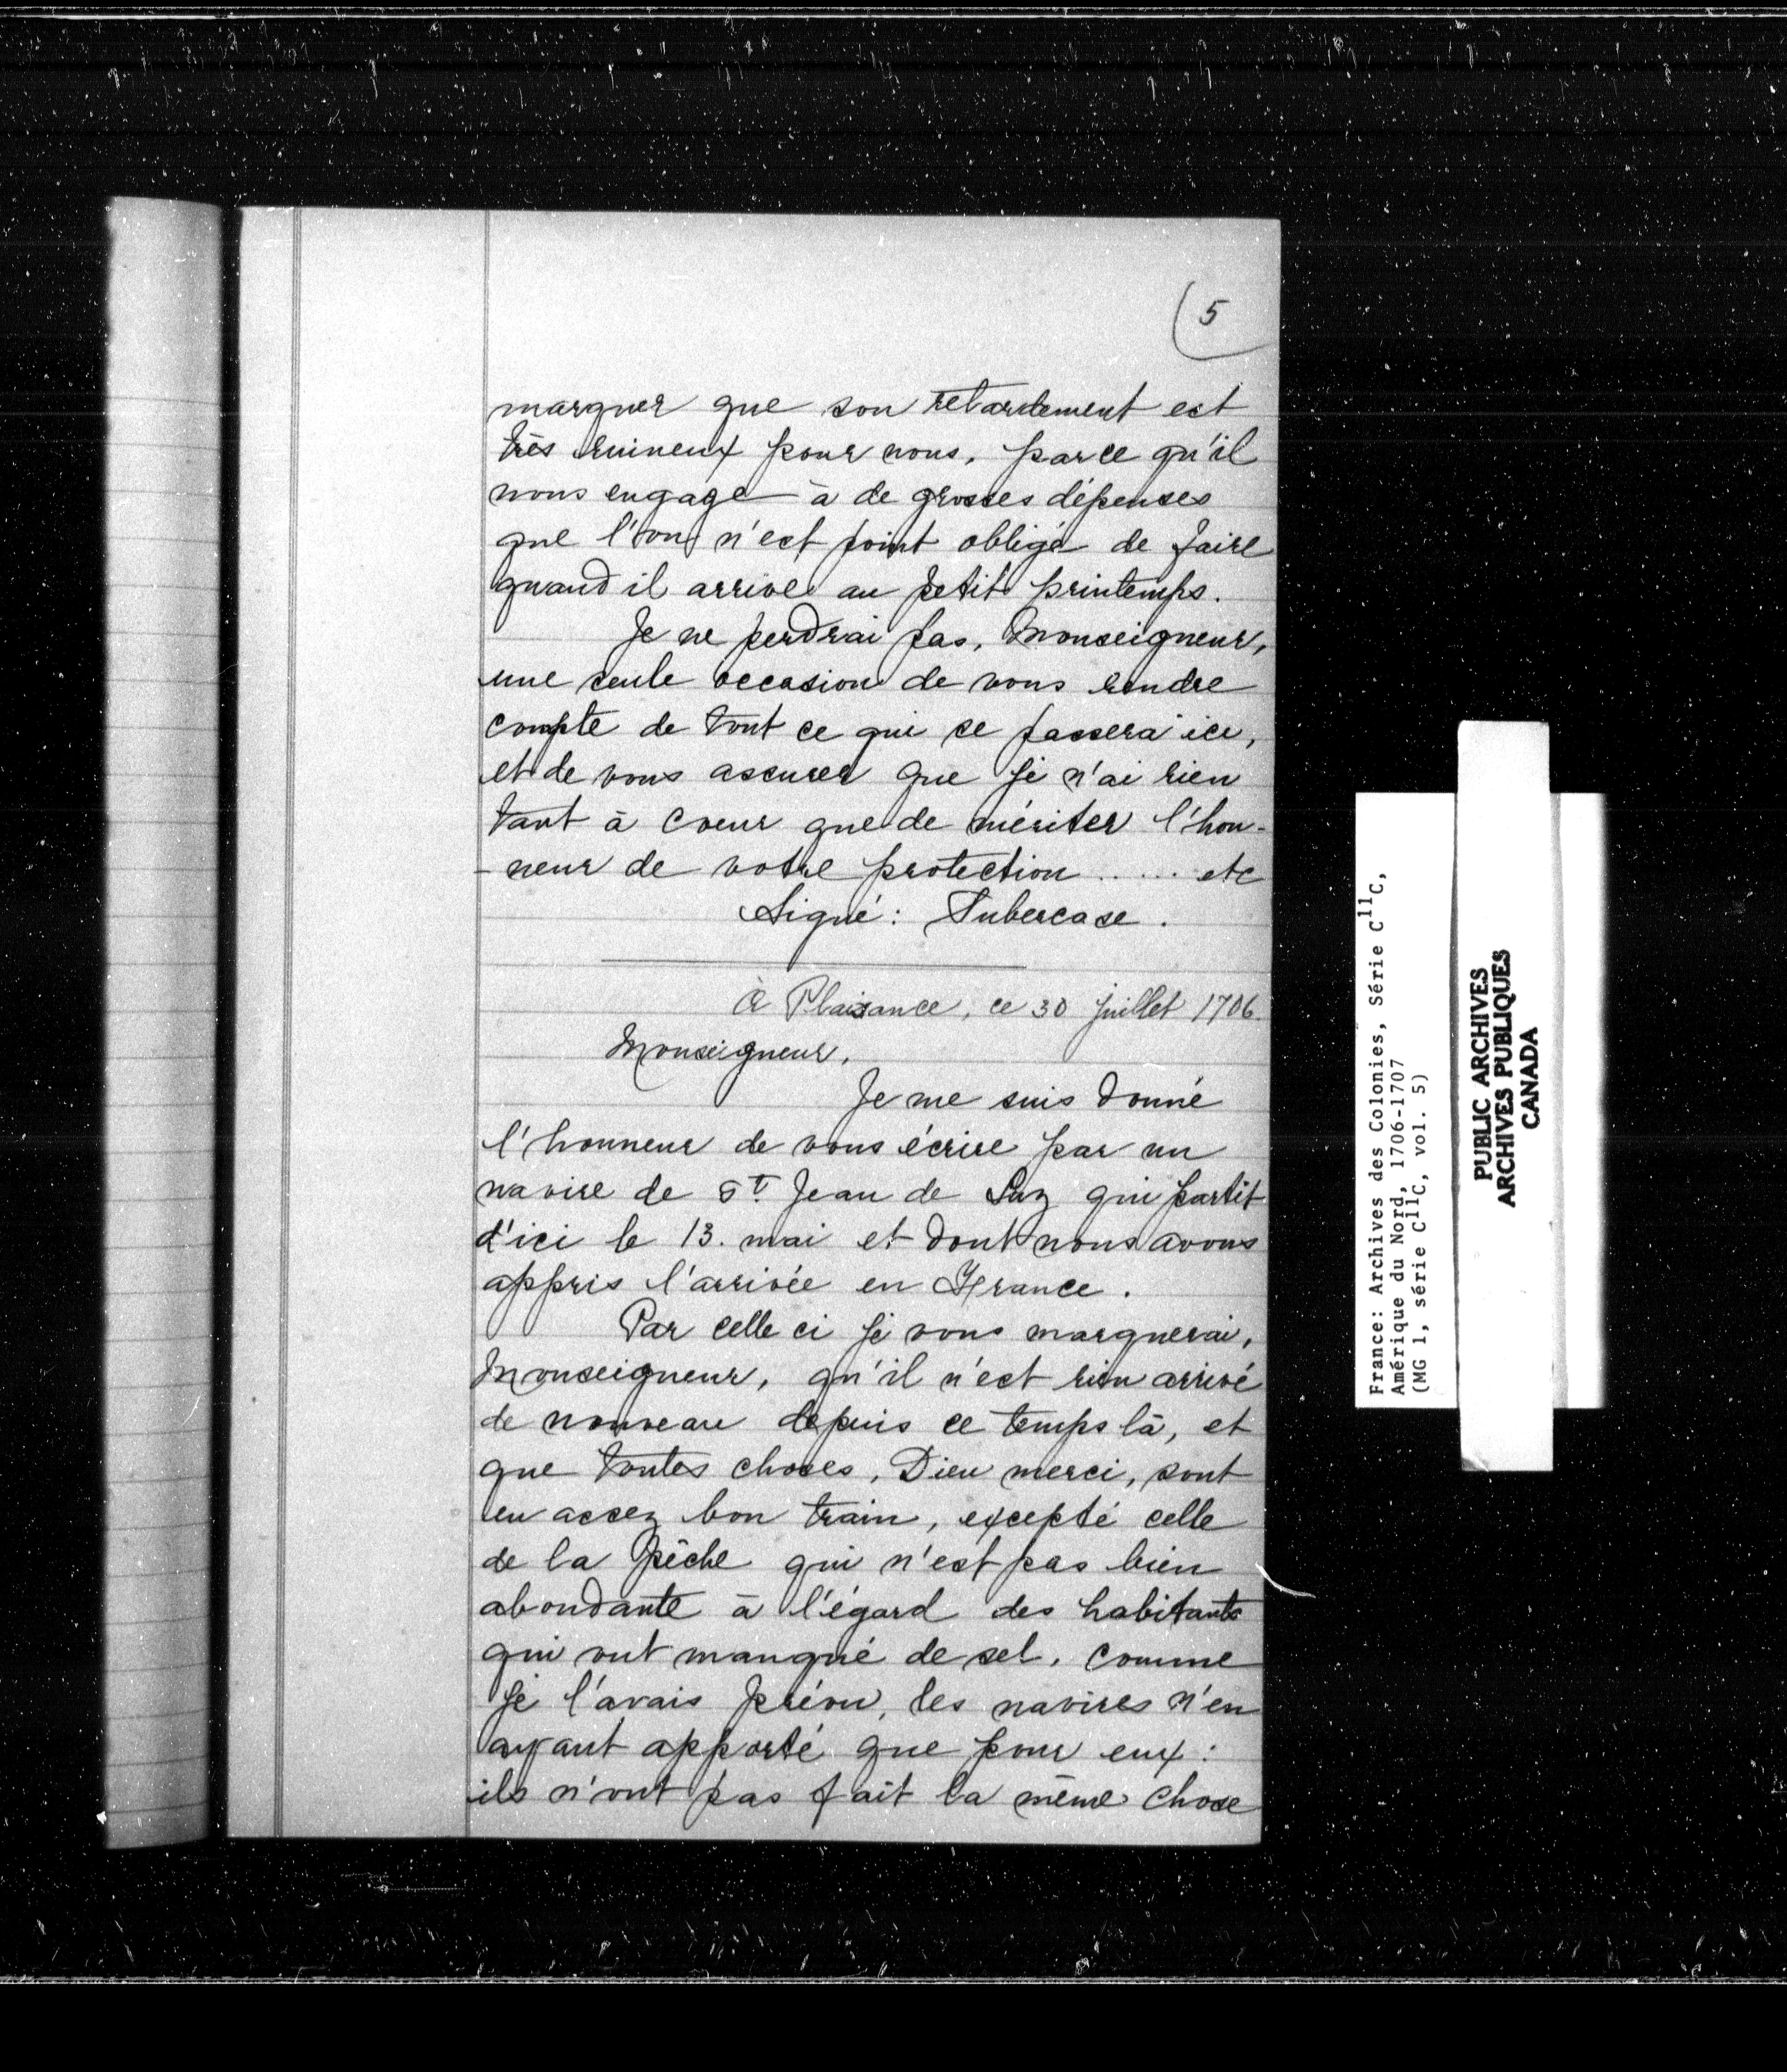 5
marquer que son retardement est
très ruineux pour nous, parce qu'il
nous engage à de grosses dépenses
que l'on n'est point obligé de faire
quand il arrive au petit printemps.
Je ne perdrai pas, Monseigneur,
une seule occasion de vous rendre
compte de tout ce qui se passera ici,
et de vous assurer que je n'ai rien
tant à coeur que de mériter l'hon-
-neur de votre protection ..... etc
Signé: Subercase.
À Plaisance, ce 30 juillet 1706.
Monseigneur,
Je me suis donné
l'honneur de vous écrire par un
navire de St Jean de Luz qui partit
d'ici le 13. mai et dont nous avons
appris l'arrivée en France.
Par celle ci je vous marquerai,
Monseigneur, qu'il n'est rien arrivé
de nouveau depuis ce temps là, et
que toutes choses, Dieu merci, sont
en assez bon train, excepté celle
de la pêche qui n'est pas bien
abondante à l'égard des habitants
qui ont manqué de sel, comme
je l'avais prévu, les navires n'en
ayant apporté que pour eux:
ils n'ont pas fait la même chose
France: Archives des Colonies, Série C11C,
Amérique du Nord, 1706-1707
(MG 1, série C11C, vol. 5)
PUBLIC ARCHIVES
ARCHIVES PUBLIQUES
CANADA